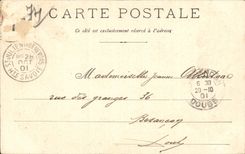 CARTE POSTALE
Ce côté est exclusivement réservé à l'adresse
Mademoiselle Jeanne
rue des granges 36
Besançon
Doubs
ST JULIEN EN GENEVOIS
01
HTE SAVOIE
6 30
29-10
01
DOUBS